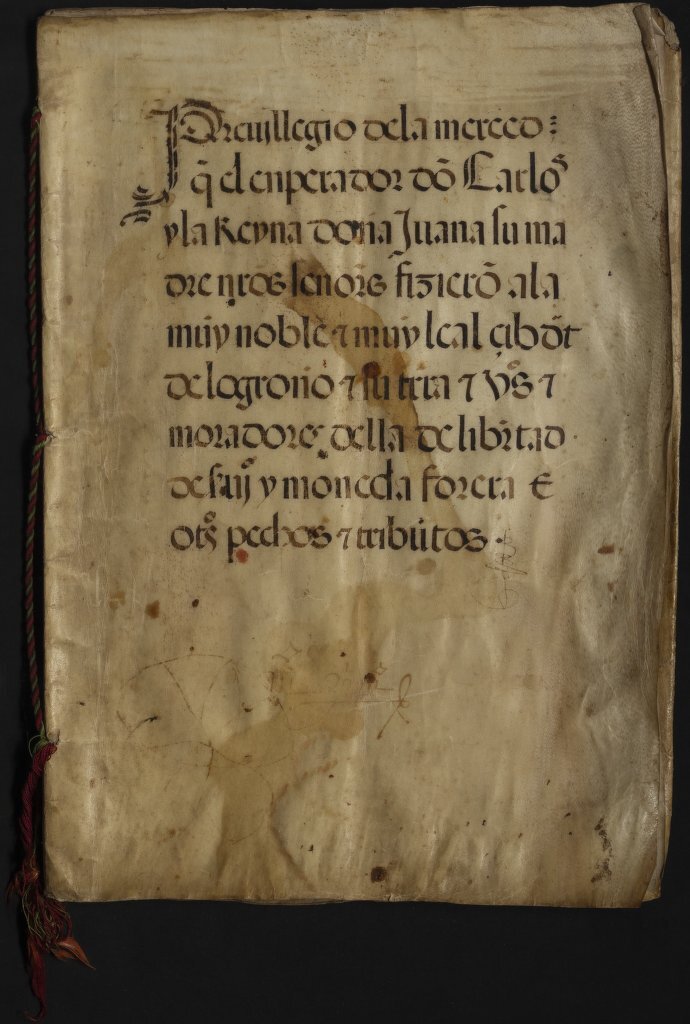 Preuyllegio dela merced
q̃ el enperador dõ Carlos
y la Reyna doña Juana su ma
dre nr̃os señores fizierõ ala
muy noble ⁊ muy leal çibdat
de logroño ⁊ su trr̃a ⁊ vos ⁊
moradores della de libr̃tad
de y moneda forera E
otros pechos ⁊ tributos